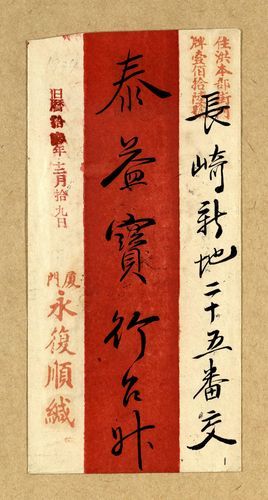 住洪本部街門
牌壹佰拾陸號
長崎新地二十五番交
泰益寶號台升
旧曆拾年十二月拾九日
厦門
永復順緘